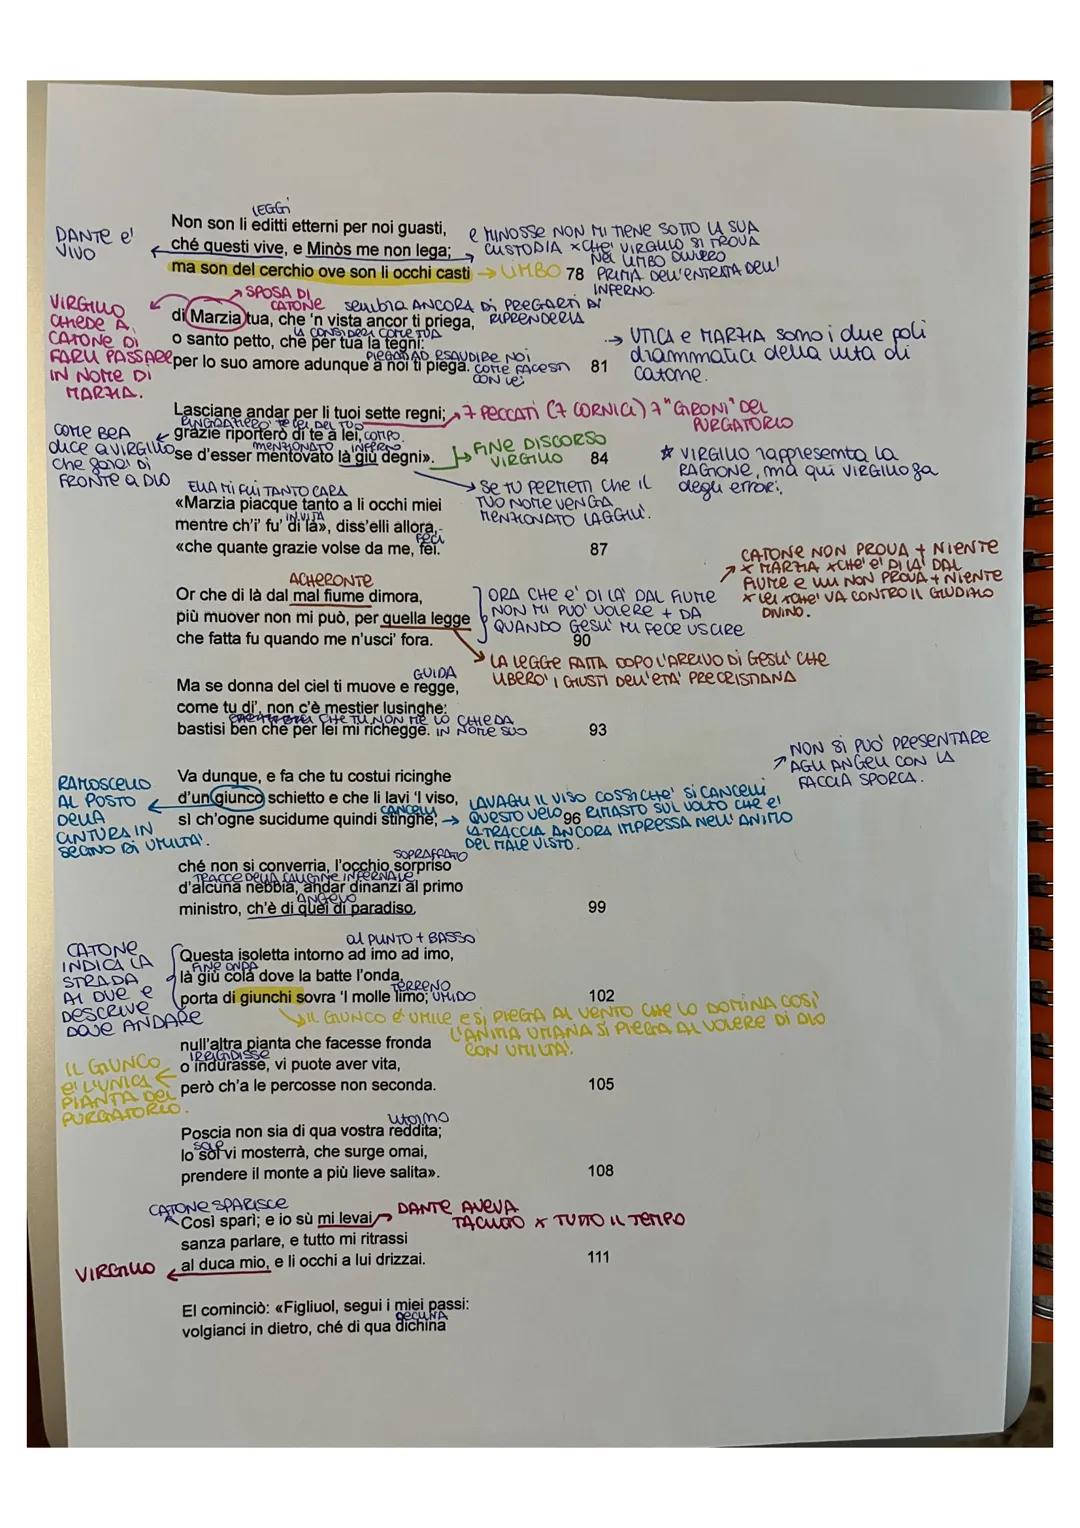 LEGGI
Non son li editti etterni per noi guasti,
DANTE E' VIVO
ché questi vive, e Minòs me non lega;
E MINOSSE NON MI TIENE SOTTO LA SUA
CUSTODIA XCHE' VIRGILIO SI TROVA
NEL LIMBO OVVERO
PRIMA DELL'ENTRATA DELL'
INFERNO.
ma son del cerchio ove son li occhi casti
LIMBO 78
SPOSA DI
CATONE
sembra ANCORA DI PREGARTI DI
RIPRENDERLA
di Marzia tua, che 'n vista ancor ti priega,
VIRGILIO
CHIEDE A
CATONE DI
FARLI PASSARE
IN NOME DI
MARZIA.
LA CONSIDERI COME TUA
o santo petto, che per tua la tegni:
UTICA e MARZIA sono i due poli
drammatici della vita di
catone.
PIEGATI AD ESAUDIRE NOI
COME FACESTI
CON LEI
per lo suo amore adunque a noi ti piega.
81
Lasciane andar per li tuoi sette regni;
7 PECCATI (7 CORNICI) 7 "GIRONI" DEL
PURGATORIO
RINGRAZIERO' TE LEI DEL TUO
grazie riporterò di te a lei,
COMPO.
COME BEA
dice a VIRGILIO
che farei di
FRONTE a DIO
MENZIONATO INFERNO
se d'esser mentovato là giù degni».
FINE DISCORSO
VIRGILIO
84
* VIRGILIO rappresenta la
RAGIONE, ma qui VIRGILIO fa
degli errori.
SE TU PERMETTI CHE IL
TUO NOME VENGA
MENZIONATO LAGGIU'.
ELLA MI FUI TANTO CARA
«Marzia piacque tanto a li occhi miei
IN VITA
mentre ch'i' fu' di là», diss'elli allora,
FECI
«che quante grazie volse da me, fei.
87
CATONE NON PROVA + NIENTE
X MARZIA XCHE' E' DI LA' DAL
FIUME E LUI NON PROVA + NIENTE
X LEI XCHE' VA CONTRO IL GIUDIZIO
DIVINO.
ACHERONTE
Or che di là dal mal fiume dimora,
più muover non mi può, per quella legge
che fatta fu quando me n'usci' fora.
ORA CHE E' DI LA' DAL FIUME
NON MI PUO' VOLERE + DA
QUANDO GESU' MI FECE USCIRE
90
LA LEGGE FATTA DOPO L'ARRIVO DI GESU' CHE
LIBERO' I GIUSTI DELL'ETA' PRECRISTIANA
GUIDA
Ma se donna del ciel ti muove e regge,
come tu di', non c'è mestier lusinghe:
CHE TU NON ME LO CHIEDA
IN NOME SUO
bastisi ben che per lei mi richegge.
93
NON SI PUO' PRESENTARE
AGLI ANGELI CON LA
FACCIA SPORCA.
Va dunque, e fa che tu costui ricinghe
RAMOSCELLO
AL POSTO
DELLA
CINTURA IN
SEGNO DI UMILTA'.
d'un giunco schietto e che li lavi 'l viso,
CANCELLI
sì ch'ogne sucidume quindi stinghe;
LAVAGLI IL VISO COSSICHE' SI CANCELLI
QUESTO VELO RIMASTO SUL VOLTO CHE E'
LA TRACCIA ANCORA IMPRESSA NELL'ANIMO
DEL MALE VISTO.
96
SOPRAFFATTO
ché non si converria, l'occhio sorpriso
TRACCE DELLA CALIGINE INFERNALE
d'alcuna nebbia, andar dinanzi al primo
ANGELO
ministro, ch'è di quei di paradiso.
99
al PUNTO + BASSO
Questa isoletta intorno ad imo ad imo,
CATONE
INDICA LA
STRADA
AI DUE E
DESCRIVE
DOVE ANDARE
là giù colà dove la batte l'onda,
TERRENO
UMIDO
porta di giunchi sovra 'l molle limo;
102
IL GIUNCO E' UMILE E SI PIEGA AL VENTO CHE LO DOMINA COSI'
L'ANIMA UMANA SI PIEGA AL VOLERE DI DIO
CON UMILTA'.
null'altra pianta che facesse fronda
IRRIGIDISSE
o indurasse, vi puote aver vita,
IL GIUNCO
E' L'UNICA
PIANTA DEL
PURGATORIO.
però ch'a le percosse non seconda.
105
RITORNO
Poscia non sia di qua vostra reddita;
SOLE
lo sol vi mosterrà, che surge omai,
prendere il monte a più lieve salita».
108
CATONE SPARISCE
Così sparì; e io sù mi levai
DANTE AVEVA
TACIUTO X TUTTO IL TEMPO
sanza parlare, e tutto mi ritrassi
VIRGILIO
al duca mio, e li occhi a lui drizzai.
111
El cominciò: «Figliuol, segui i miei passi:
DECLINA
volgianci in dietro, ché di qua dichina